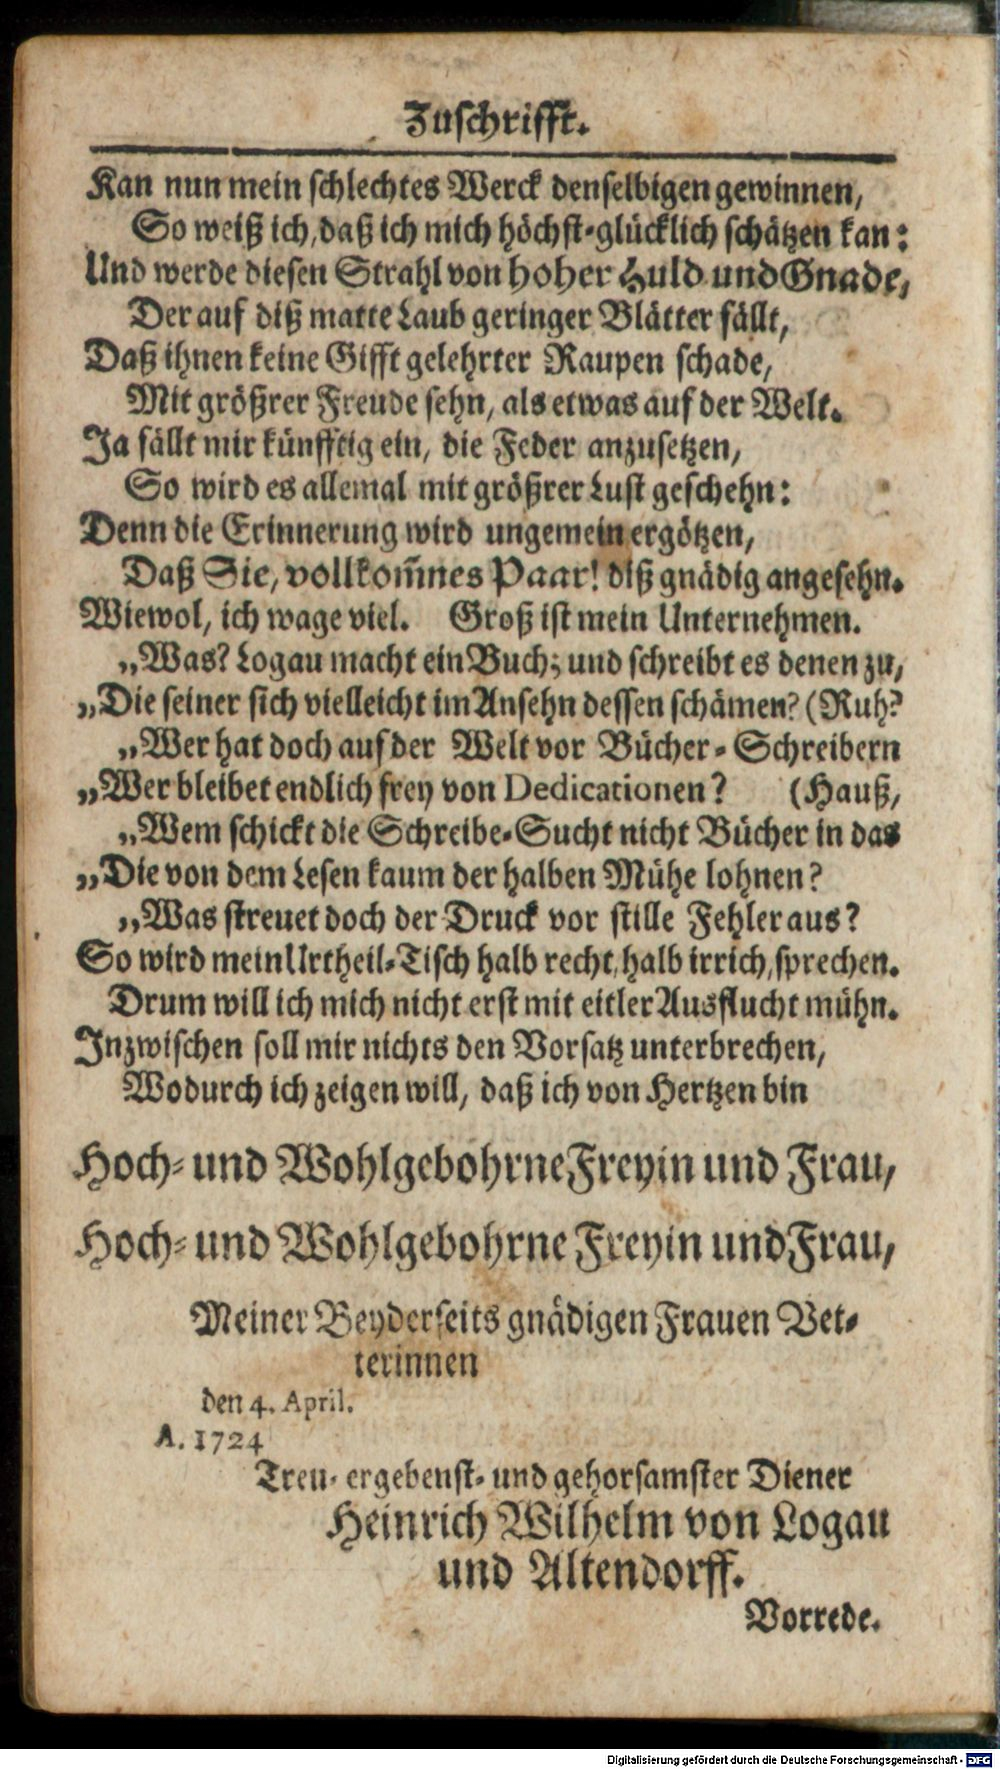 Zuschrifft.
Kan nun mein schlechtes Werck denselbigen gewinnen,
So weiß ich, daß ich mich höchst-glücklich schätzen kan:
Und werde diesen Strahl von hoher Huld und Gnade,
Der auf diß matte Laub geringer Blätter fällt,
Daß ihnen keine Gifft gelehrter Raupen schade,
Mit größrer Freude sehn, als etwas auf der Welt.
Ja fällt mir künfftig ein, die Feder anzusetzen,
So wird es allemal mit größrer Lust geschehn:
Denn die Erinnerung wird ungemein ergötzen,
Daß Sie, vollkom̃nes Paar! diß gnädig angesehn.
Wiewol, ich wage viel. Groß ist mein Unternehmen.
„Was? Logau macht ein Buch; und schreibt es denen zu,
„Die seiner sich vielleicht im Ansehn dessen schämen? (Ruh?
„Wer hat doch auf der Welt vor Bücher-Schreibern
„Wer bleibet endlich frey von Dedicationen? (Hauß,
„Wem schickt die Schreibe-Sucht nicht Bücher in das
„Die von dem Lesen kaum der halben Mühe lohnen?
„Was streuet doch der Druck vor stille Fehler aus?
So wird mein Urtheil-Tisch halb recht, halb irrich, sprechen.
Drum will ich mich nicht erst mit eitler Ausflucht mühn.
Inzwischen soll mir nichts den Vorsatz unterbrechen,
Wodurch ich zeigen will, daß ich von Hertzen bin
Hoch- und Wohlgebohrne Freyin und Frau,
Hoch- und Wohlgebohrne Freyin und Frau,
Meiner Beyderseits gnädigen Frauen Vet-
terinnen
den 4. April.
A. 1724
Treu- ergebenst- und gehorsamster Diener
Heinrich Wilhelm von Logau
und Altendorff.
Vorrede.
Digitalisierung gefördert durch die Deutsche Forschungsgemeinschaft - DFG